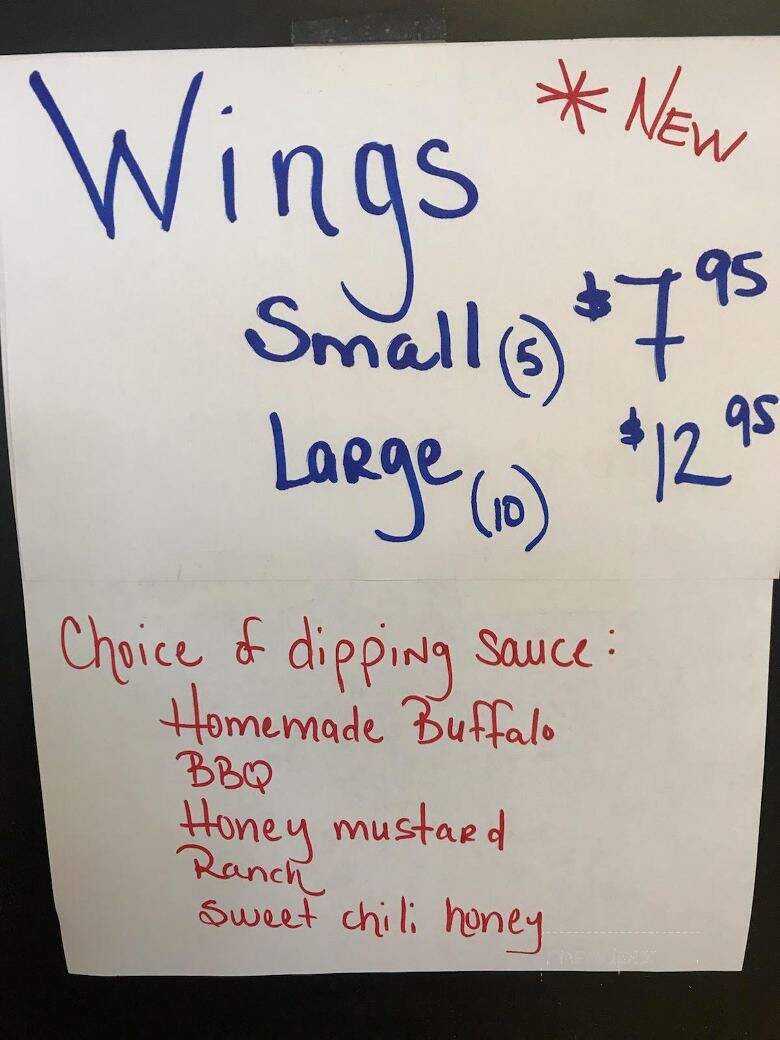 Wings
* NEW
Small (5) $7.95
Large (10) $12.95
Choice of dipping sauce:
Homemade Buffalo
BBQ
Honey mustard
Ranch
Sweet chili honey